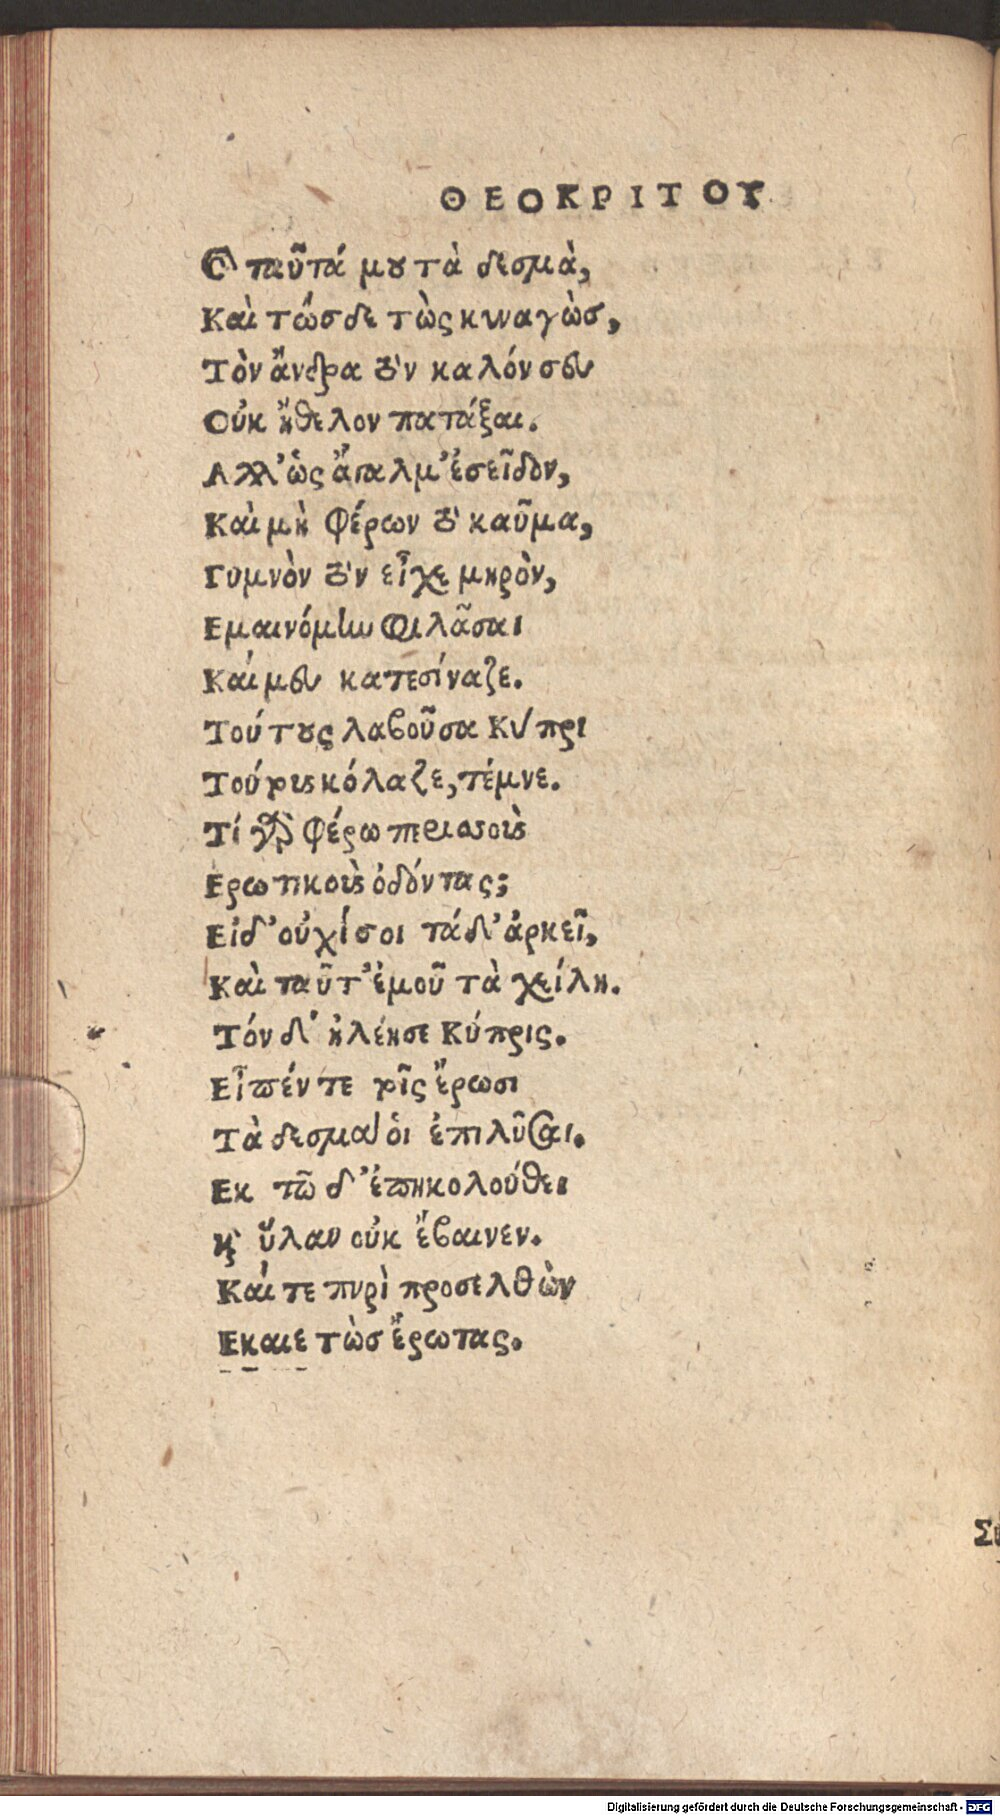 ΘΕΟΚΡΙΤΟΥ
Καὶ ταῦτά μου τὰ δεσμὰ,
Καὶ τώσδε τὼς κυναγὼσ,
Τὸν ἄνδρα τόν καλόν σευ
Οὐκ ἤθελον πατάξαι.
Αλλ' ὡς ἄγαλμ' ἐσεῖδον,
Καὶ μὴ φέρων τό καῦμα,
Γυμνὸν τόν εἶχε μηρὸν,
Εμαινόμην φιλᾶσαι
Καί μευ κατεσίναζε.
Τούτους λαβοῦσα Κύπρι
Τούτους κόλαζε, τέμνε.
Τί γὰρ φέρω περισσοὺς
Ερωτικοὺς ὀδόντας;
Εἰδ' οὐχί σοι τάδ' ἀρκεῖ,
Καὶ ταῦτ' ἐμοῦ τὰ χείλη.
Τόν δ' ἠλέησε Κύπρις.
Εἶπέν τε τοῖς ἔρωσι
Τὰ δεσμά οἱ ἐπιλῦσαι.
Εκ τῶ δ' ἐπηκολούθει
κς ὕλαν οὐκ ἔβαινεν.
Καί τε πυρὶ προσελθὼν
Εκαιε τὼσ ἔρωτας.
Digitalisierung gefördert durch die Deutsche Forschungsgemeinschaft - DFG